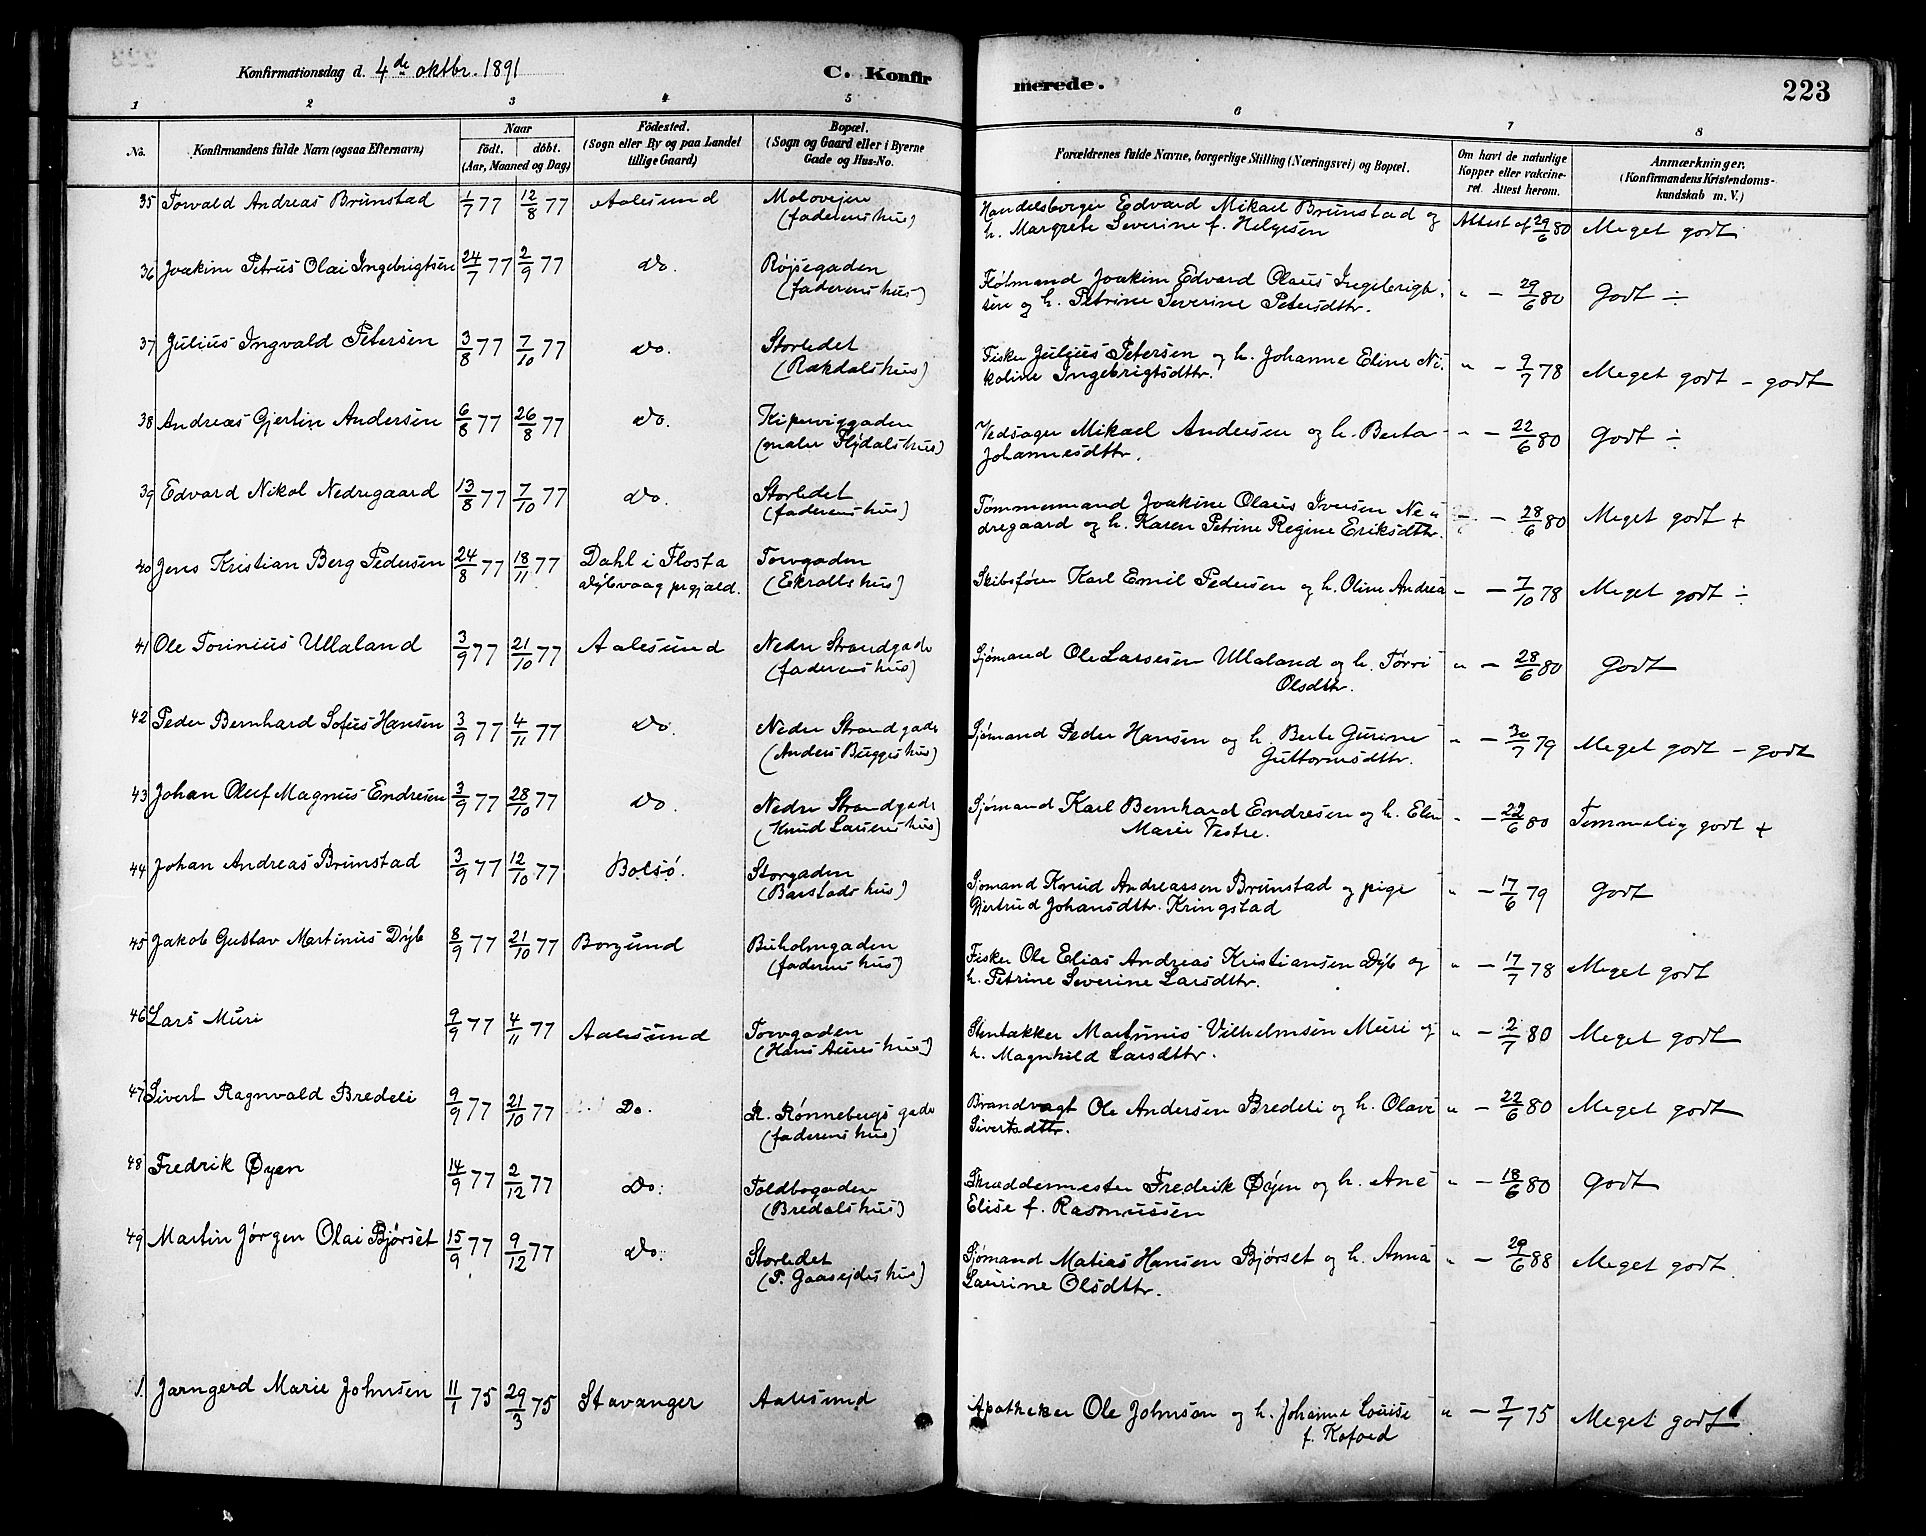 Konfirmationsdag d. 4de oktbr. 1891 C. Konfirmerede. 223
1 2 3 4 5 6 7 8
No. Konfirmandens fulde Navn (ogsaa Efternavn) Naar født. døbt. (Aar, Maaned og Dag) Fødested. (Sogn eller By og paa Landet tillige Gaard) Bopæl. (Sogn og Gaard eller i Byerne Gade og Hus-No. Forældrenes fulde Navne, borgerlige Stilling (Næringsvei) og Bopæl. Om havt de naturlige Kopper eller vaccineret. Attest herom. Anmærkninger. (Konfirmandens Kristendomskundskab m. V.)
35 Torvald Andreas Brunstad 1/7 77 12/8 77 Aalesund Molovejen Handelsborger Edvard Mikael Brunstad og Attest af 29/6 80 Meget godt
(faderens hus) h. Margrete Severine f. Helgesen
36 Joakim Petrus Olai Ingebrigtsen 24/7 77 2/9 77 do. Røjsegaden Fløtmand Joakim Edvard Olaus Ingebrigt- " — 29/6 80 Godt ÷
(faderens hus) sen og h. Petrine Severine Petersdttr.
37 Julius Ingvald Petersen 3/8 77 7/10 77 do. Storledet Fisker Julius Petersen og h. Johanne Eline Ni- " — 9/7 78 Meget godt - godt
(Rakdals hus) koline Ingebrigtsdttr.
38 Andreas Gjertin Andersen 6/8 77 26/8 77 do. Kiperviggaden Vedsager Mikael Andersen og h. Berta " — 22/6 80 Godt ÷
(maler Flydals hus) Johannesdttr.
39 Edvard Nikol Nedregaard 13/8 77 7/10 77 do. Storledet Tømmermand Joakim Olaus Iversen Ne- — 28/6 80 Meget godt +
(faderens hus) dregaard og h. Karen Petrine Regine Eriksdttr.
40 Jens Kristian Berg Pedersen 24/8 77 18/11 77 Dahl i Flosta Torvgaden Skibsfører Karl Emil Pedersen og h. Oline Andrea " — 7/10 78 Meget godt ÷
Dybvaag prgjæld. (Ekrolls hus)
41 Ole Torinius Ullaland 3/9 77 21/10 77 Aalesund Nedre Strandgade Sjømand Ole Larsesen Ullaland og h. Tørri " — 28/6 80 Godt
(faderens hus) Olsdttr.
42 Peder Bernhard Sofus Hansen 3/9 77 4/11 77 do. Nedre Strandgade Sjømand Peder Hansen og h. Berte Gurine " — 30/7 79 Meget godt - godt
(Anders Bugges hus) Guttormsdttr.
43 Johan Oluf Magnus Endresen 3/9 77 28/10 77 do. Nedre Strandgade Sjømand Karl Bernhard Endresen og h. Elen " — 22/6 80 Temmelig godt +
(Knud Larsens hus) Marie Vestre.
44 Johan Andreas Brunstad 3/9 77 12/10 77 Bolsø. Storgaden Sjømand Knud Andreassen Brunstad og pige " — 17/6 79 Godt
(Barstads hus) Gjertrud Johansdttr. Kringstad
45 Jakob Gustav Martinus Dyb 8/9 77 21/10 77 Borgund Buholmgaden Fisker Ole Elias Andreas Kristiansen Dyb og " — 17/7 78 Meget godt
(faderens hus) h. Petrine Severine Larsdttr.
46 Lars Muri 9/9 77 4/11 77 Aalesund Torvgaden Stentakker Martinus Vilhelmsen Muri og " — 2/7 80 Meget godt
(Hans Aures hus) h. Magnhild Larsdttr.
47 Sivert Ragnvald Bredeli 9/9 77 21/10 77 Do. R. Rønnebergs gade Brandvagt Ole Andersen Bredeli og h. Olave " — 22/6 80 Meget godt
(faderens hus) Sivertsdttr.
48 Fredrik Øyen 14/9 77 2/12 77 do. Toldbogaden Skræddermester Fredrik Øyen og h. Ane " — 18/6 80 Godt
(Bredals hus) Elise f. Rasmussen
49 Martin Jørgen Olai Bjørset 15/9 77 9/12 77 do. Storledet Sjømand Matias Hansen Bjørset og h. Anna " — 29/6 88 Meget godt
(P. Gaasejdes hus) Laurine Olsdttr.
1. Jarngerd Marie Johnsen 11/1 75 29/3 75 Stavanger Aalesund Apotheker Ole Johnson og h. Johanne Louise " — 7/7 75 Meget godt
f. Kofoed